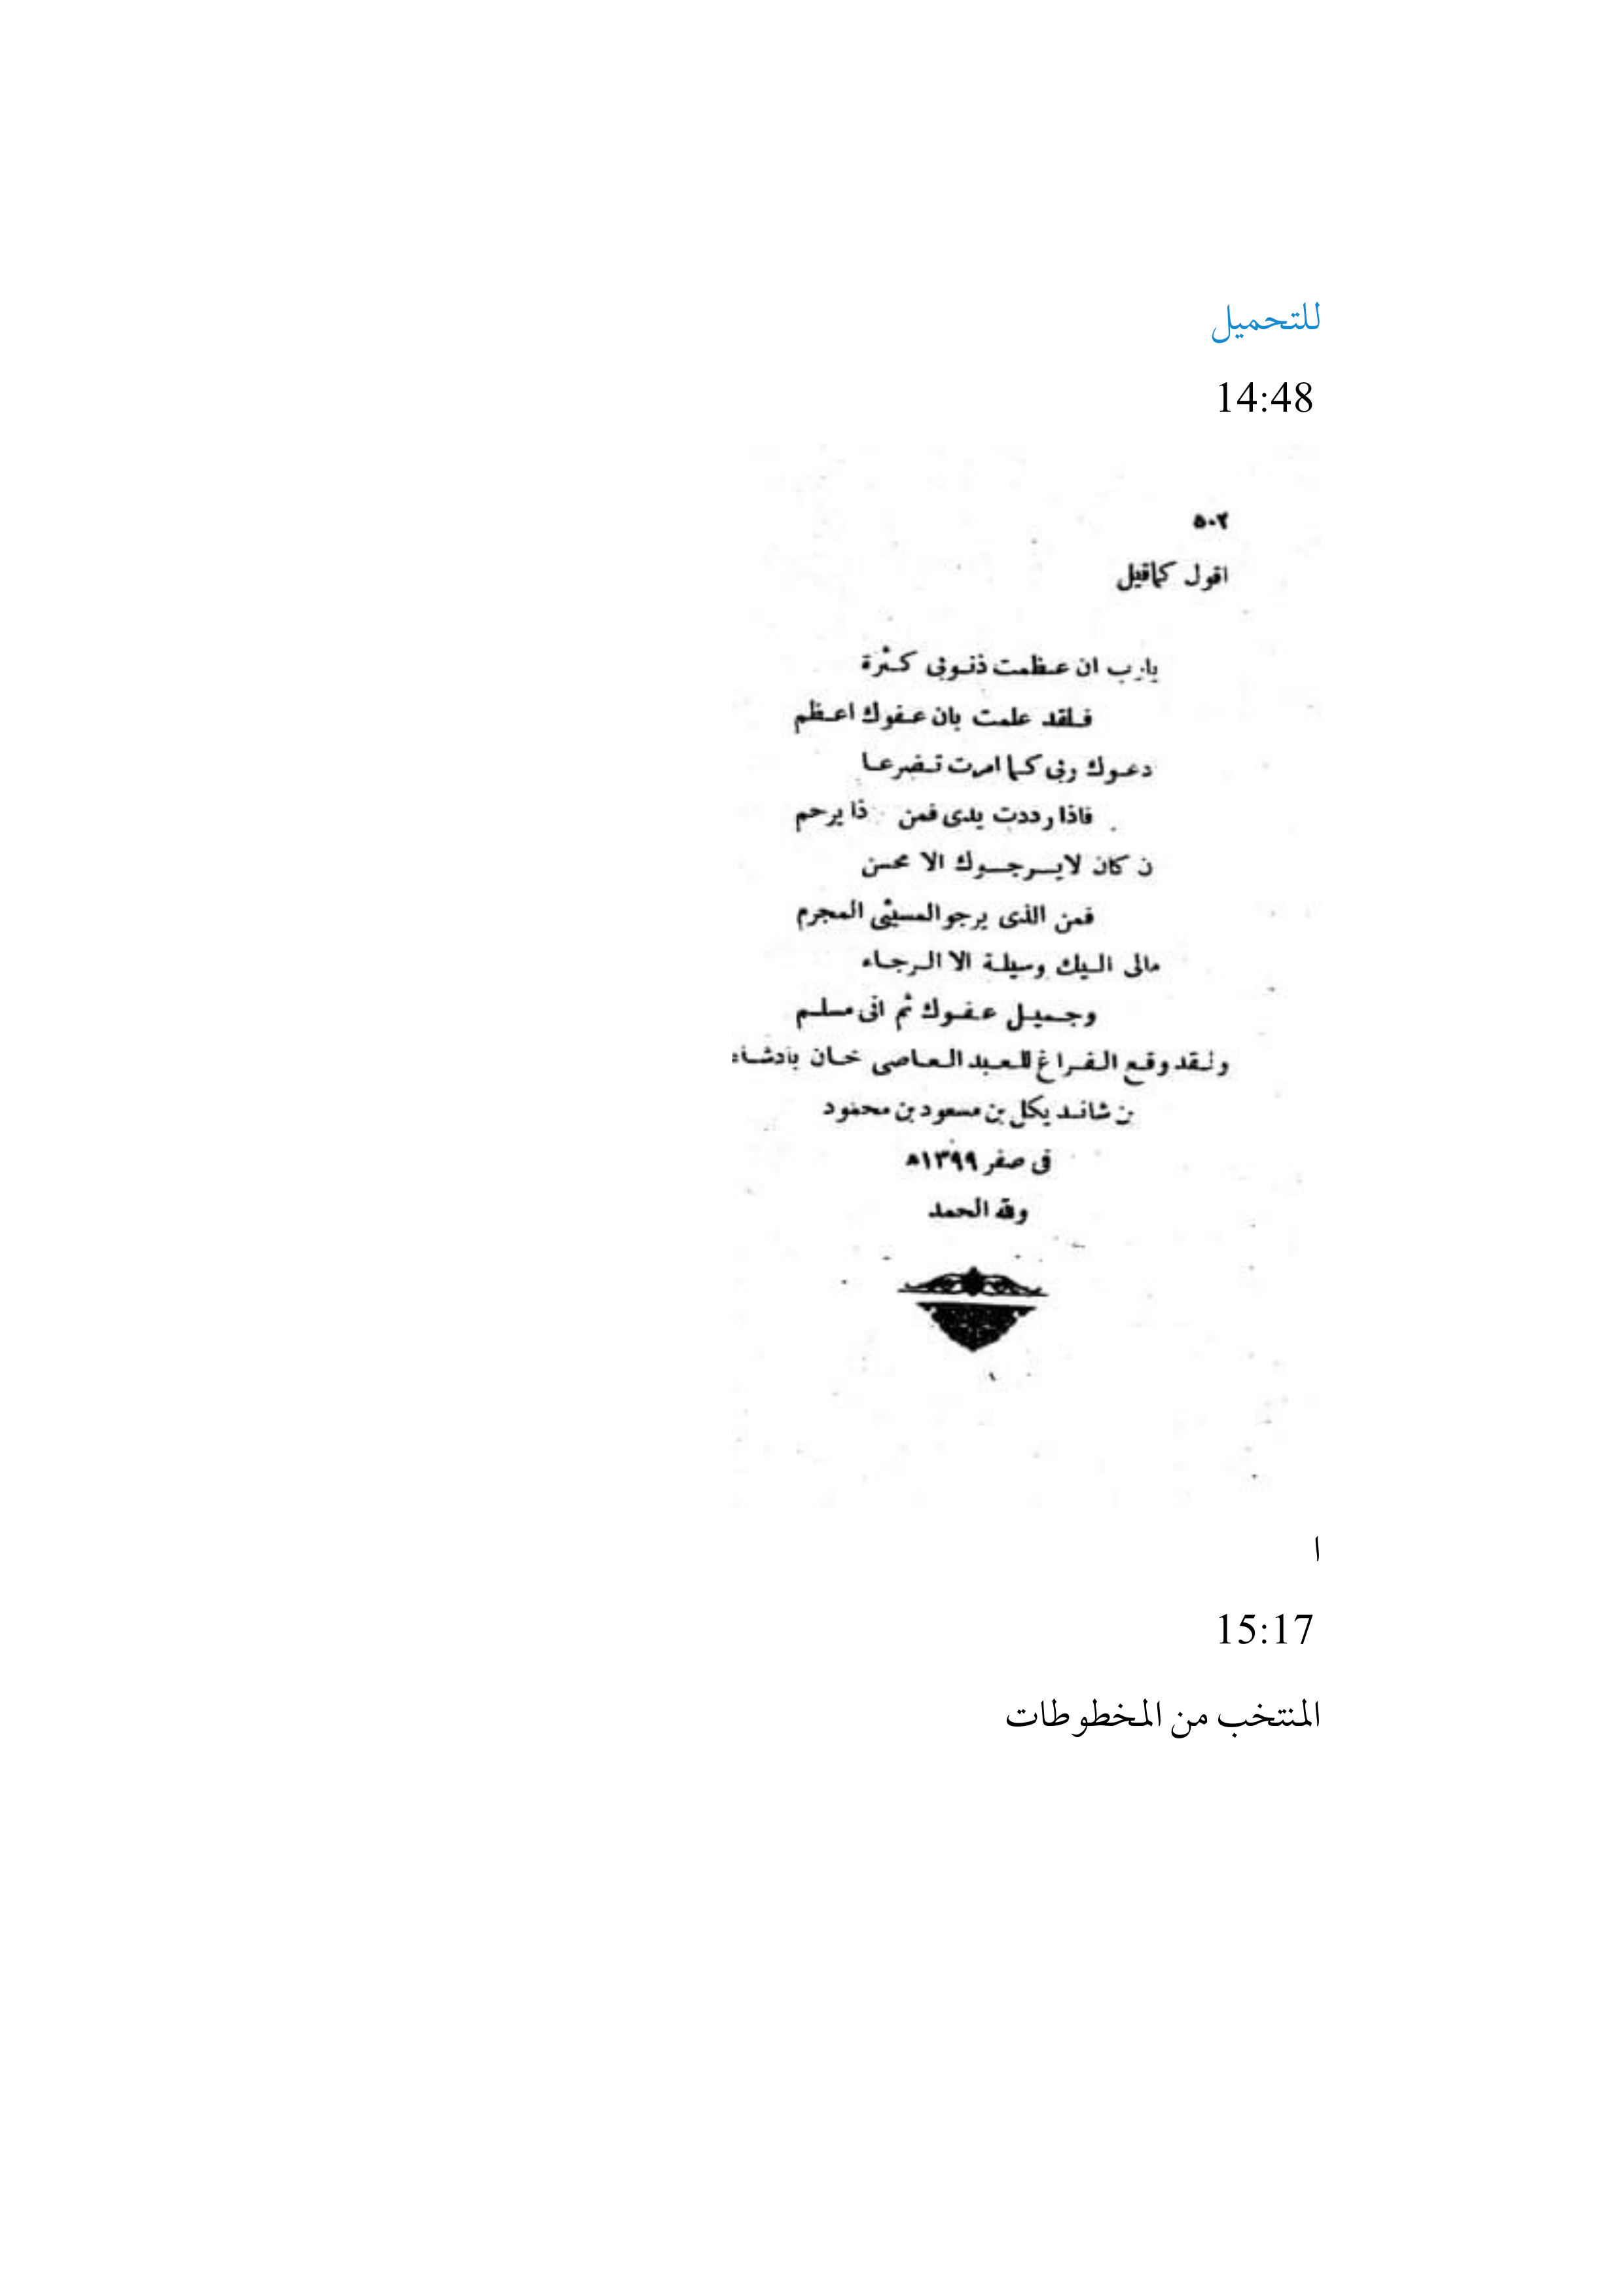 للتحميل
14:48
٥٠٢
اقول كماقيل
يارب ان عظمت ذنوبى كثرة
فلقد علمت بان عفوك اعظم
دعوك ربى كما امرت تضرعا
فاذا رددت يدى فمن ذا يرحم
ن كان لايرجوك الا محسن
فمن الذى يرجو المسيئى المجرم
مالى اليك وسيلة الا الرجاء
وجميل عفوك ثم انى مسلم
ولقد وقع الفراغ للعبد العاصى خان بادشاه
بن شاندیکل بن مسعود بن محمود
فى صفر ١٣٩٩ه
ولله الحمد
ا
15:17
المنتخب من المخطوطات